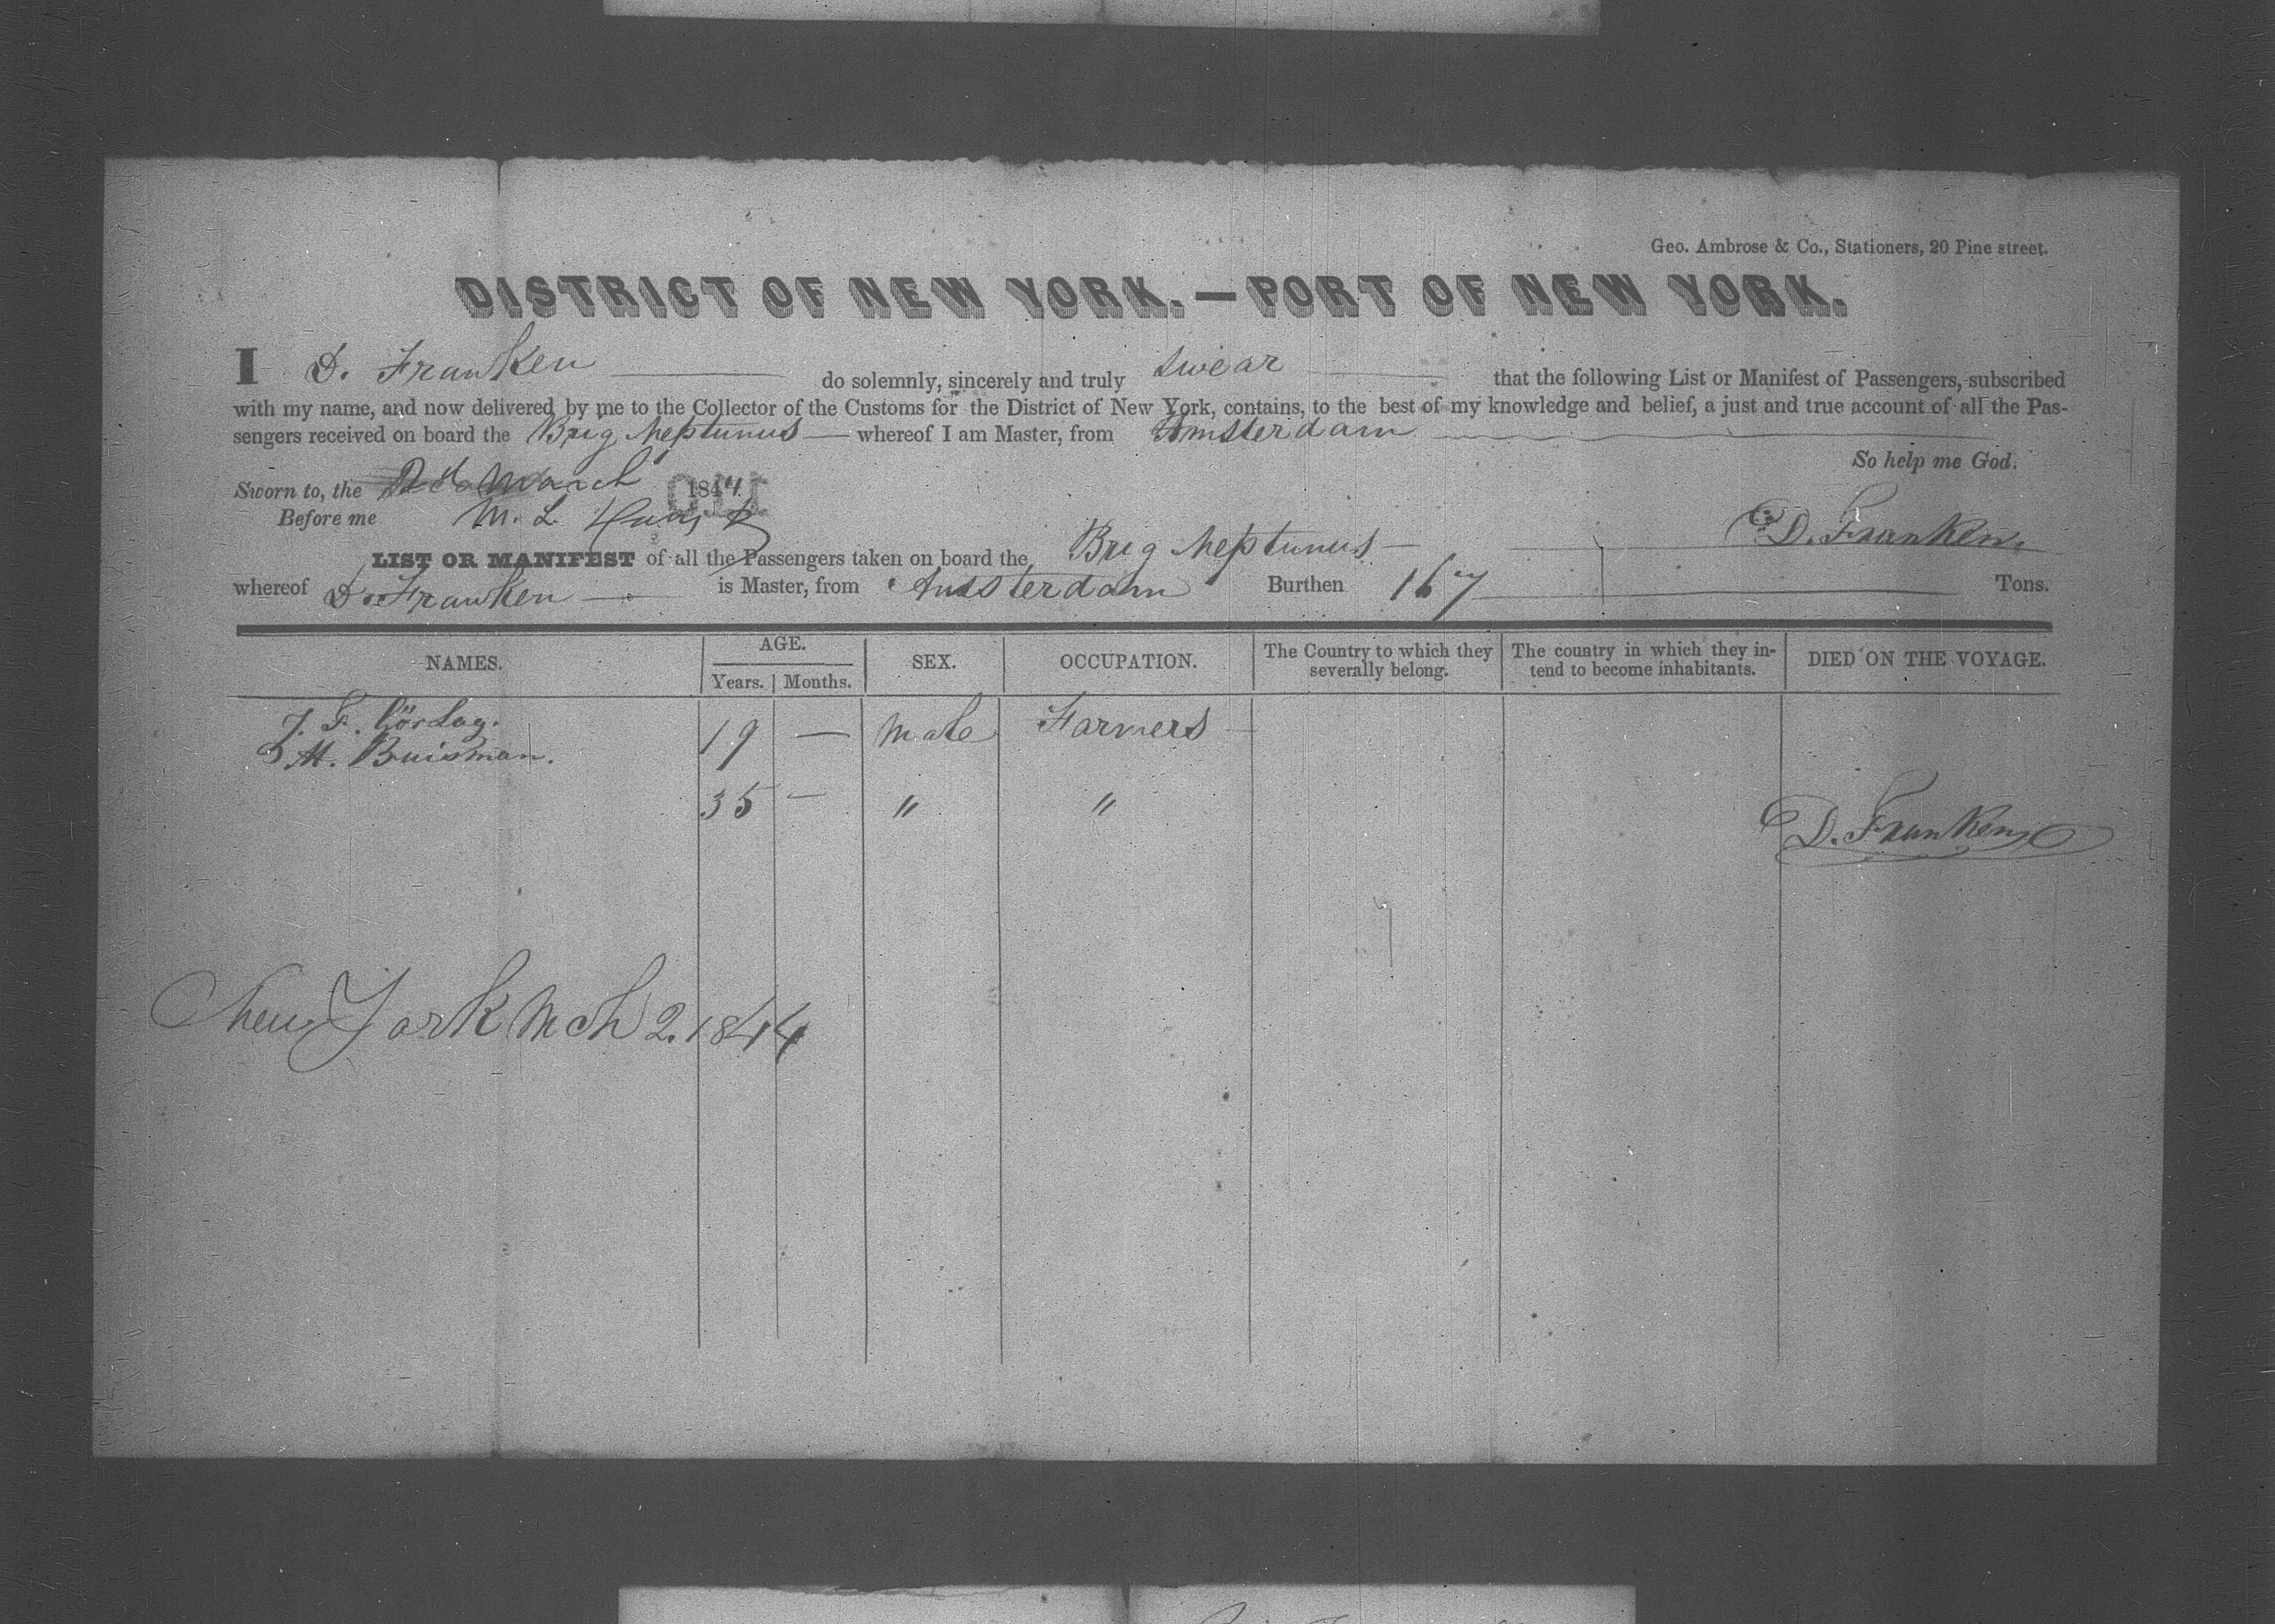 Geo. Ambrose & Co., Stationers, 20 Pine street.
DISTRICT OF NEW YORK.—PORT OF NEW YORK.
I D. Franken do solemnly, sincerely and truly swear that the following List or Manifest of Passengers, subscribed
with my name, and now delivered by me to the Collector of the Customs for the District of New York, contains, to the best of my knowledge and belief, a just and true account of all the Pas-
sengers received on board the Brig Neptunus — whereof I am Master, from Amsterdam
So help me God.
Sworn to, the March 1844
Before me M. L. D. Franken
LIST OR MANIFEST of all the Passengers taken on board the Brig Neptunus —
whereof D. Franken — is Master, from Amsterdam Burthen 167 Tons.
NAMES. AGE. Years. Months. SEX. OCCUPATION. The Country to which they severally belong. The country in which they in-tend to become inhabitants. DIED ON THE VOYAGE.
J. F. 19 — Male Farmers
H. Buisman.
35 — " "
D. Franken
New York Mch 2. 1844